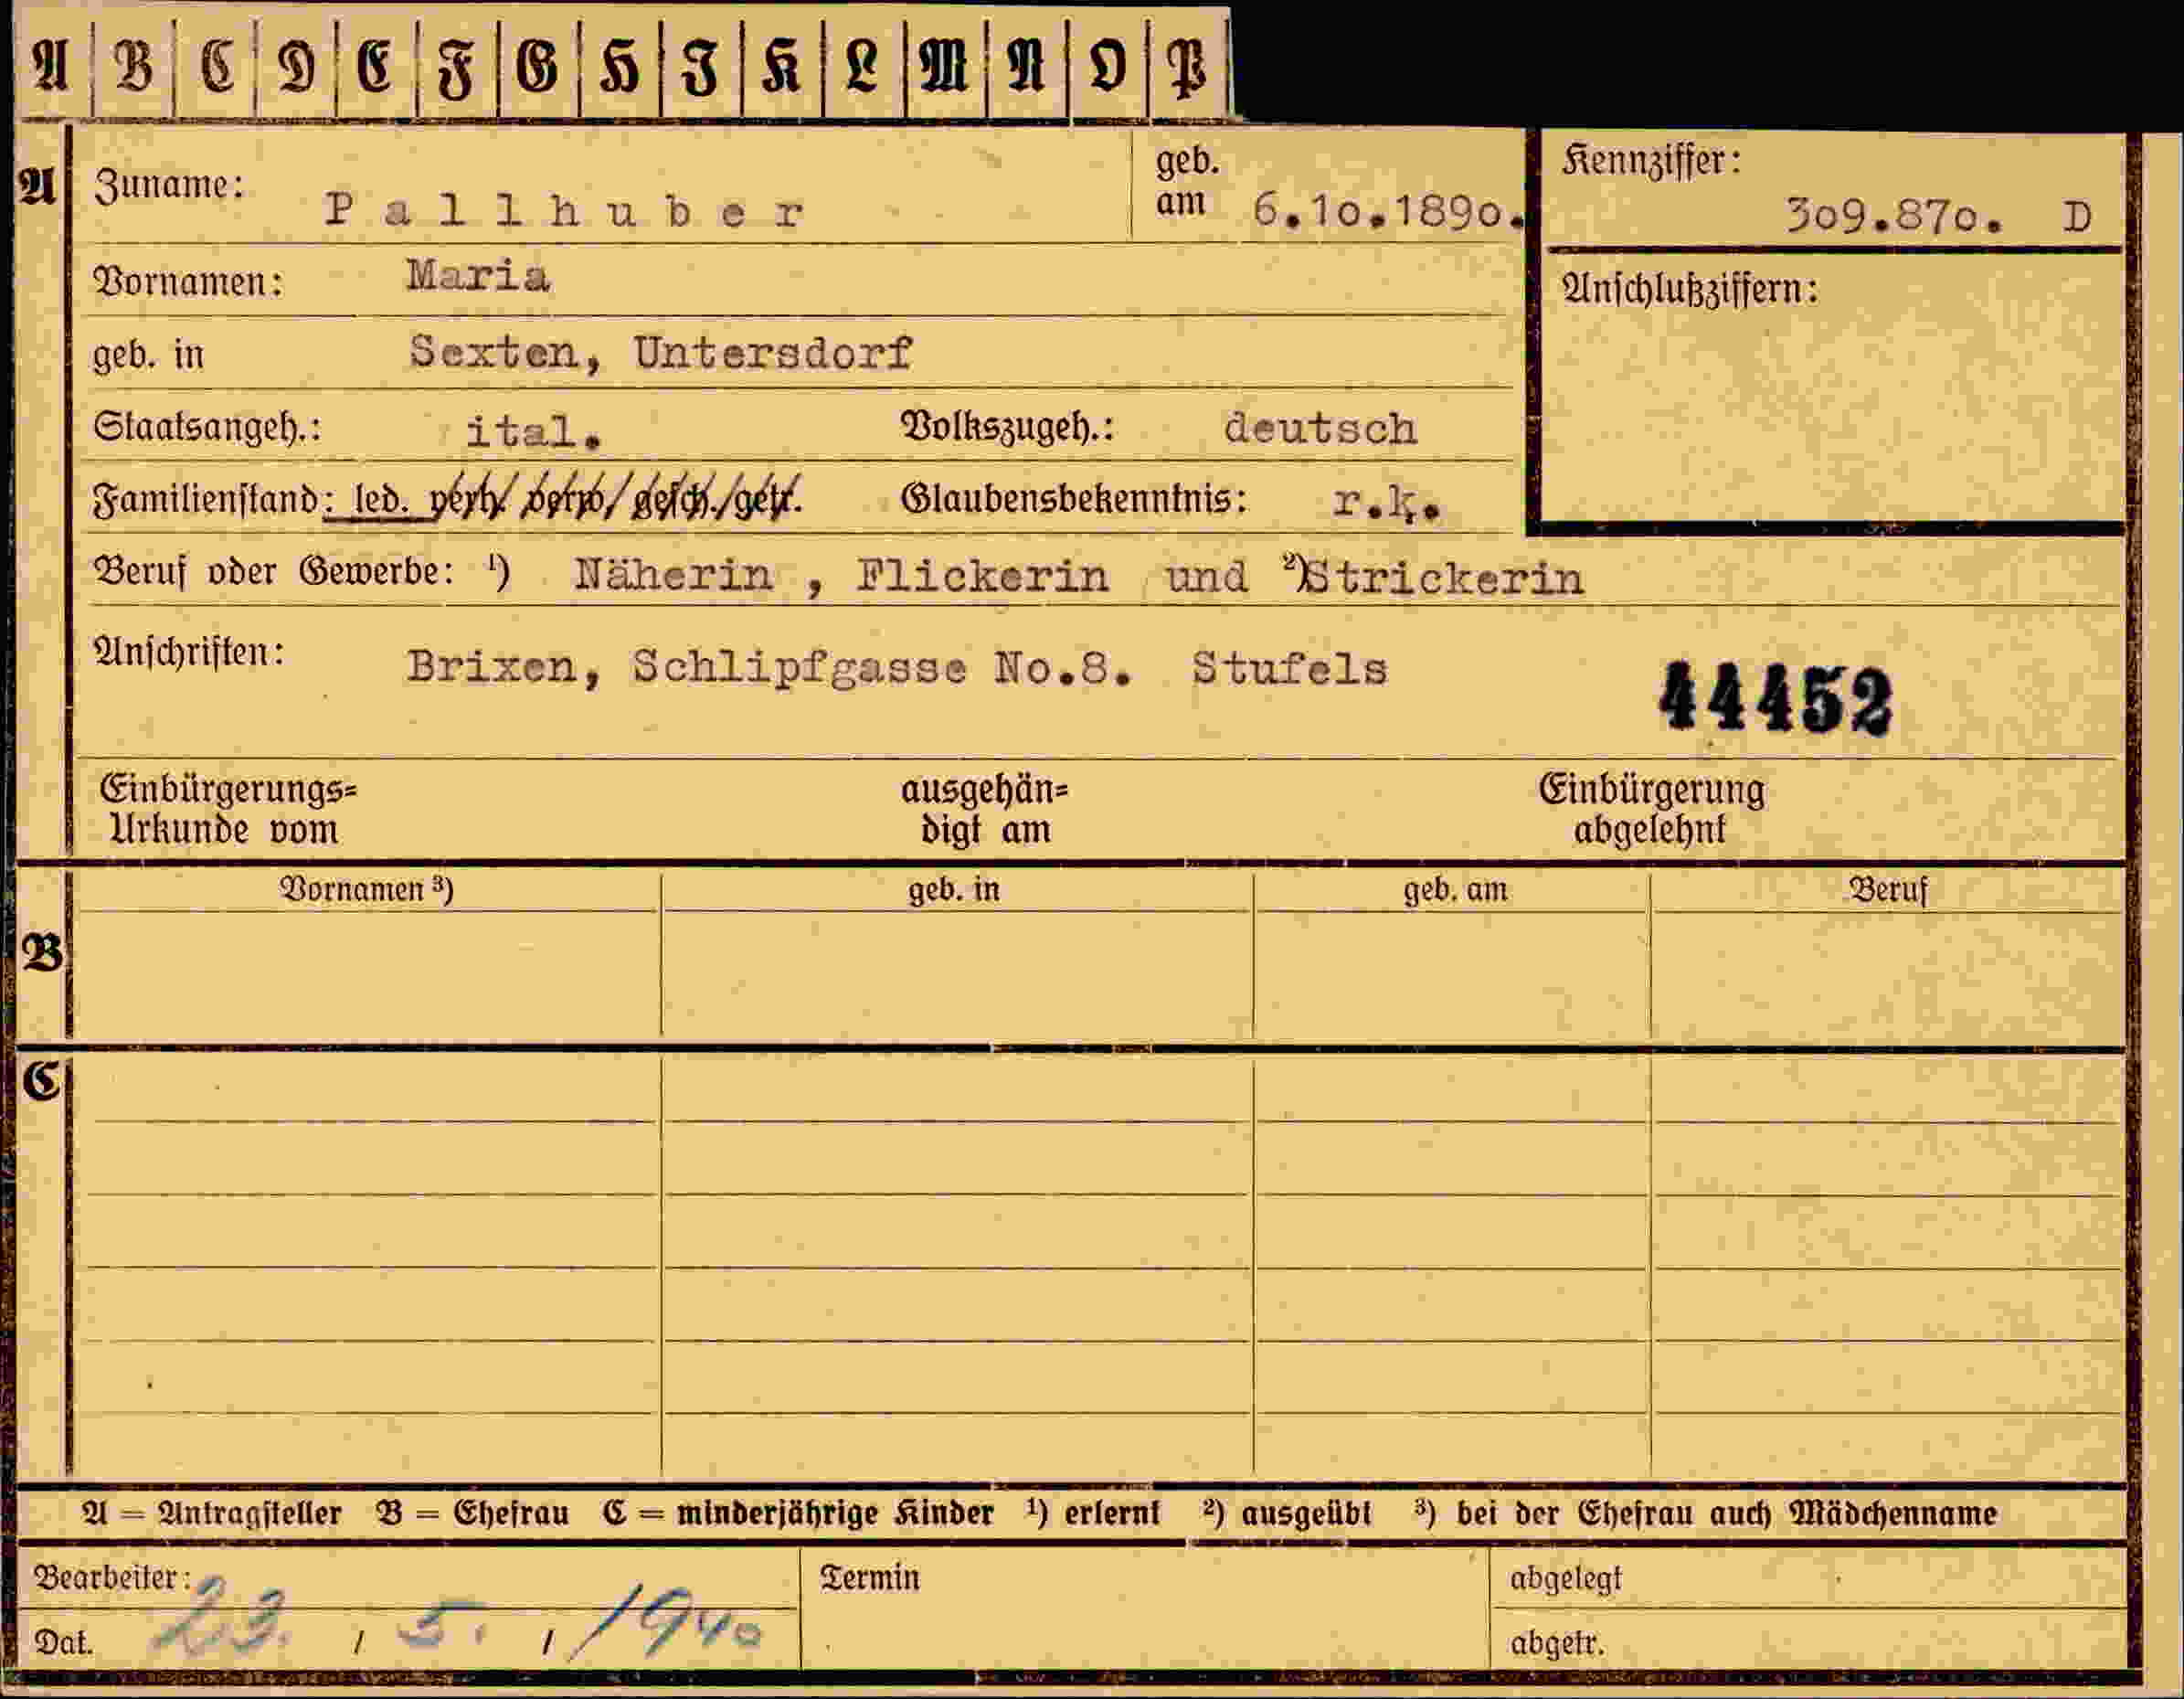 A B C D E F G H I K L M N O P
A Zuname: Pallhuber geb. am 6.10.1890. Kennziffer: 309.870. D
Vornamen: Maria
Anschlußziffern:
geb. in Sexten, Untersdorf
Staatsangeh.: ital. Volkszugeh.: deutsch
Familienstand: led. verh. verw. gesch. getr. Glaubensbekenntnis: r.k.
Beruf oder Gewerbe: ¹) Näherin , Flickerin und ²)Strickerin
Anschriften: Brixen, Schlipfgasse No.8. Stufels 44452
Einbürgerungs= ausgehän= Einbürgerung
Urkunde vom digt am abgelehnt
Vornamen ³) geb. in geb. am Beruf
B
C
A = Antragsteller B = Ehefrau C = minderjährige Kinder ¹) erlernt ²) ausgeübt ³) bei der Ehefrau auch Mädchenname
Bearbeiter: Termin abgelegt
Dat. 23. / 5. / 1940 abgetr.